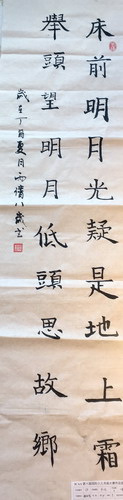 床前明月光疑是地上霜
舉頭望明月低頭思故鄉
歲在丁酉夏月雨倩八歲書